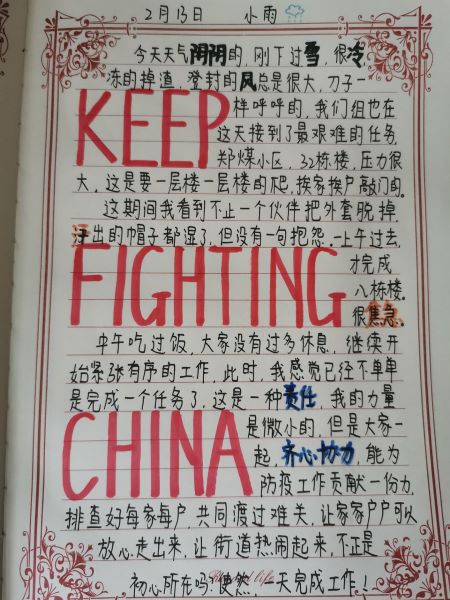 2月13日 小雨
今天天气阴阴的,刚下过雪,很冷
冻的掉渣,登封的风总是很大,刀子一
KEEP
样呼呼的,我们组也在
这天接到了最艰难的任务,
郑煤小区,32栋楼,压力很
大,这是要一层楼一层楼的爬,挨家挨户敲门的。
这期间我看到不止一个伙伴把外套脱掉,
汗出的帽子都湿了,但没有一句抱怨.一上午过去,
FIGHTING
才完成
八栋楼。
很焦急。
中午吃过饭,大家没有过多休息,继续开
始紧张有序的工作,此时,我感觉已经不单单
是完成一个任务了,这是一种责任,我的力量
CHINA
是微小的,但是大家一
起,齐心协力,能为
防疫工作贡献一份力,
排查好每家每户,共同渡过难关,让家家户户可以
放心走出来,让街道热闹起来,不正是
初心所在吗.使然!一天完成工作!